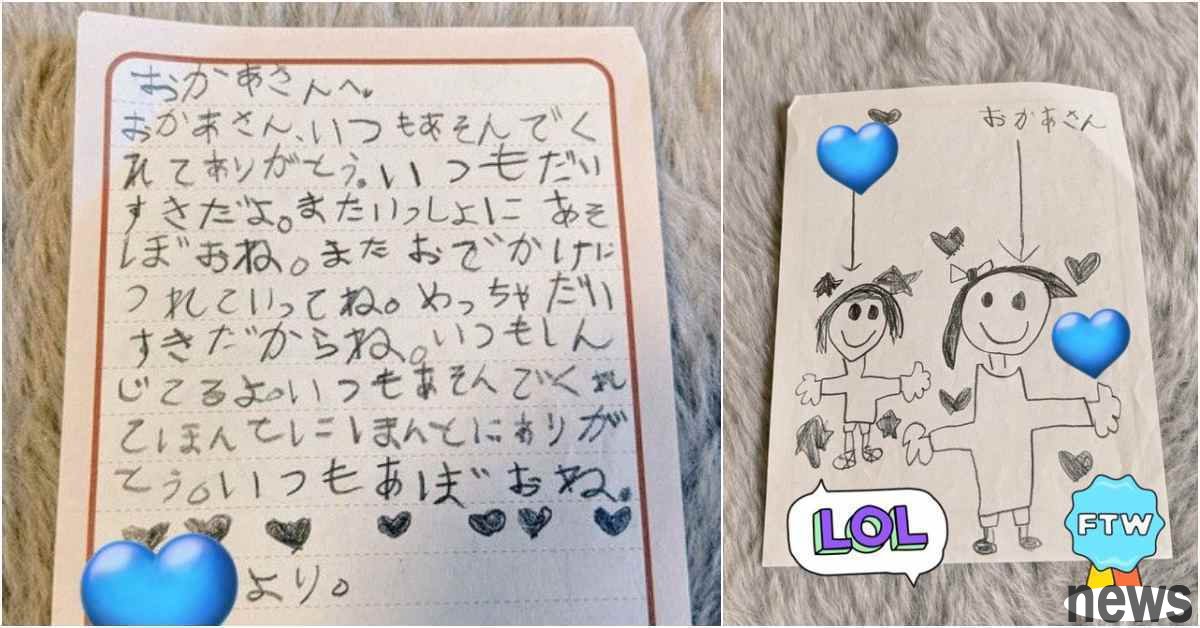 おかあさんへ。
おかあさん、いつもあそんでく
れてありがとう。いつもだい
すきだよ。またいっしょに あそ
ぼおね。また おでかけに
つれていってね。めっちゃだい
すきだからね。いつもしん
じてるよ。いつもあそんでくれ
てほんとにほまんとにありが
とう。いつもあぼおね。
より。
おかあさん
LOL
FTW
news